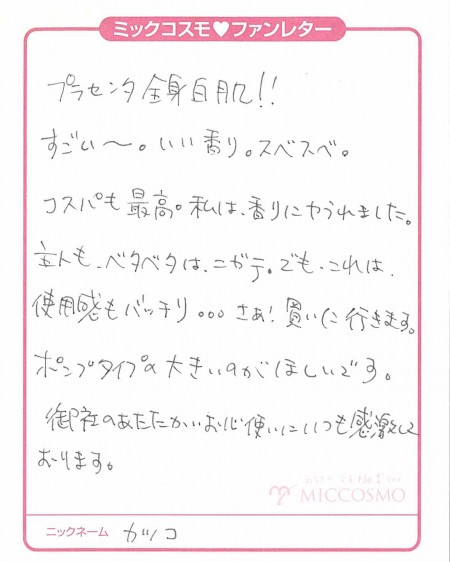 ミックコスモ♥ファンレター
プラセンタ全身白肌!!
すごい〜。いい香り。スベスベ。
コスパも最高。私は、香りにやられました。
主人も、ベタベタは、ニガテ。でも、これは、
使用感もバッチリ。。。さぁ!買いに行きます。
ポンプタイプの大きいのがほしいです。
御社のあたたかいお心使いにいつも感激して
おります。
MICCOSMO
ニックネーム カツコ